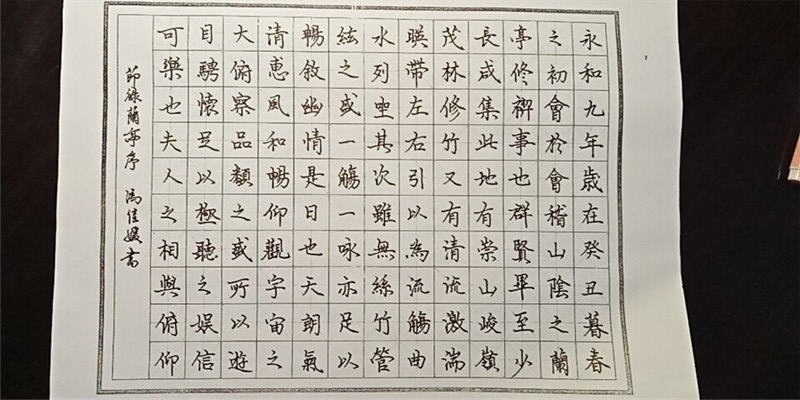 永和九年歳在癸丑暮春
之初會於會稽山陰之蘭
亭修禊事也群賢畢至少
長咸集此地有崇山峻嶺
茂林修竹又有清流激湍
暎帶左右引以為流觴曲
水列坐其次雖無絲竹管
絃之盛一觴一咏亦足以
暢敘幽情是日也天朗氣
清惠風和暢仰觀宇宙之
大俯察品類之盛所以遊
目騁懷足以極聽之娛信
可樂也夫人之相與俯仰
節録蘭亭序 馮佳媛書